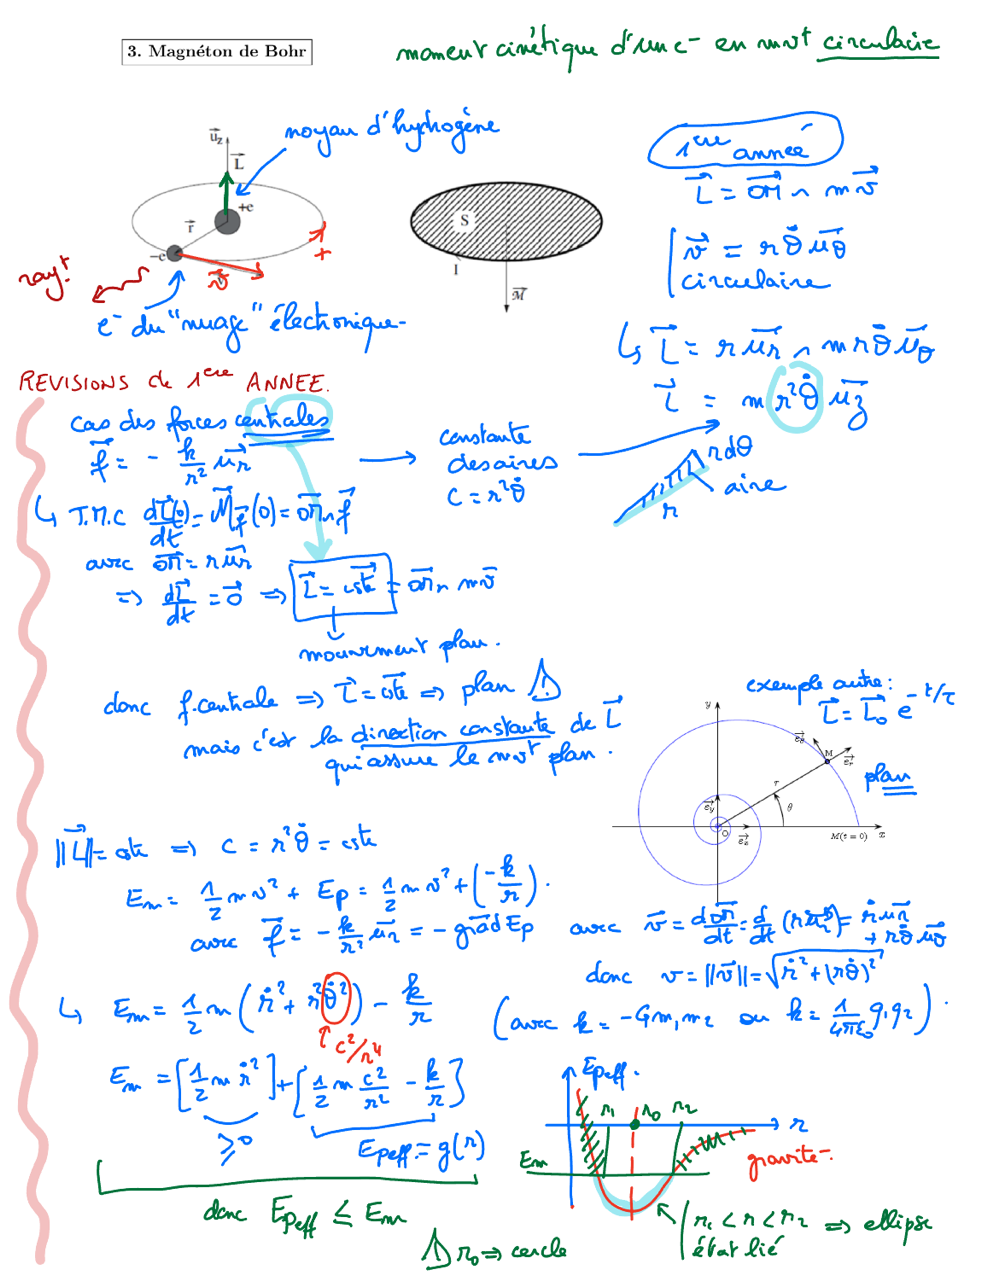 3. Magnéton de Bohr
moment cinétique d'un e⁻ en mvt circulaire
noyau d'hydrogène
u⃗z
L⃗
+e
r⃗
-e
v⃗
+
rayt
e⁻ du "nuage" électronique
S
I
M⃗
1ère année
L⃗ = OM⃗ ∧ m v⃗
v⃗ = r θ̇ u⃗θ
circulaire
↳ L⃗ = r u⃗r ∧ m r θ̇ u⃗θ
L⃗ = m r² θ̇ u⃗z
REVISIONS de 1ère ANNEE.
cas des forces centrales
f⃗ = - k/r² u⃗r
constante des aires
C = r² θ̇
r dθ
aire
r
↳ T.M.C dL⃗(0)/dt = M⃗f⃗(0) = OM⃗ ∧ f⃗
avec OM⃗ = r u⃗r
⇒ dL⃗/dt = 0⃗ ⇒ L⃗ = cste⃗ = OM⃗ ∧ m v⃗
mouvement plan.
donc f. centrale ⇒ L⃗ = cste⃗ ⇒ plan ⚠
mais c'est la direction constante de L⃗
qui assure le mvt plan.
exemple autre :
L⃗ = L⃗₀ e^(-t/τ)
plan
y
e⃗θ
M
e⃗r
r
θ
e⃗y
O
e⃗x
M(t = 0)
x
||L⃗|| = cste ⇒ C = r² θ̇ = cste
Em = 1/2 m v² + Ep = 1/2 m v² + (-k/r).
avec f⃗ = - k/r² u⃗r = - grad⃗ Ep
avec v⃗ = dOM⃗/dt = d/dt (r u⃗r) = ṙ u⃗r + r θ̇ u⃗θ
donc v = ||v⃗|| = √(ṙ² + (r θ̇)²)
↳ Em = 1/2 m (ṙ² + r² θ̇²) - k/r
C²/r⁴
(avec k = - G m₁ m₂ ou k = 1/4πε₀ q₁ q₂).
Em = [1/2 m ṙ²] + [1/2 m C²/r² - k/r]
≥ 0
Epeff = g(r)
donc Epeff ≤ Em
Epeff.
r₁ r₀ r₂
r
Em
gravité
r₁ < r < r₂ ⇒ ellipse
état lié
⚠ r₀ ⇒ cercle